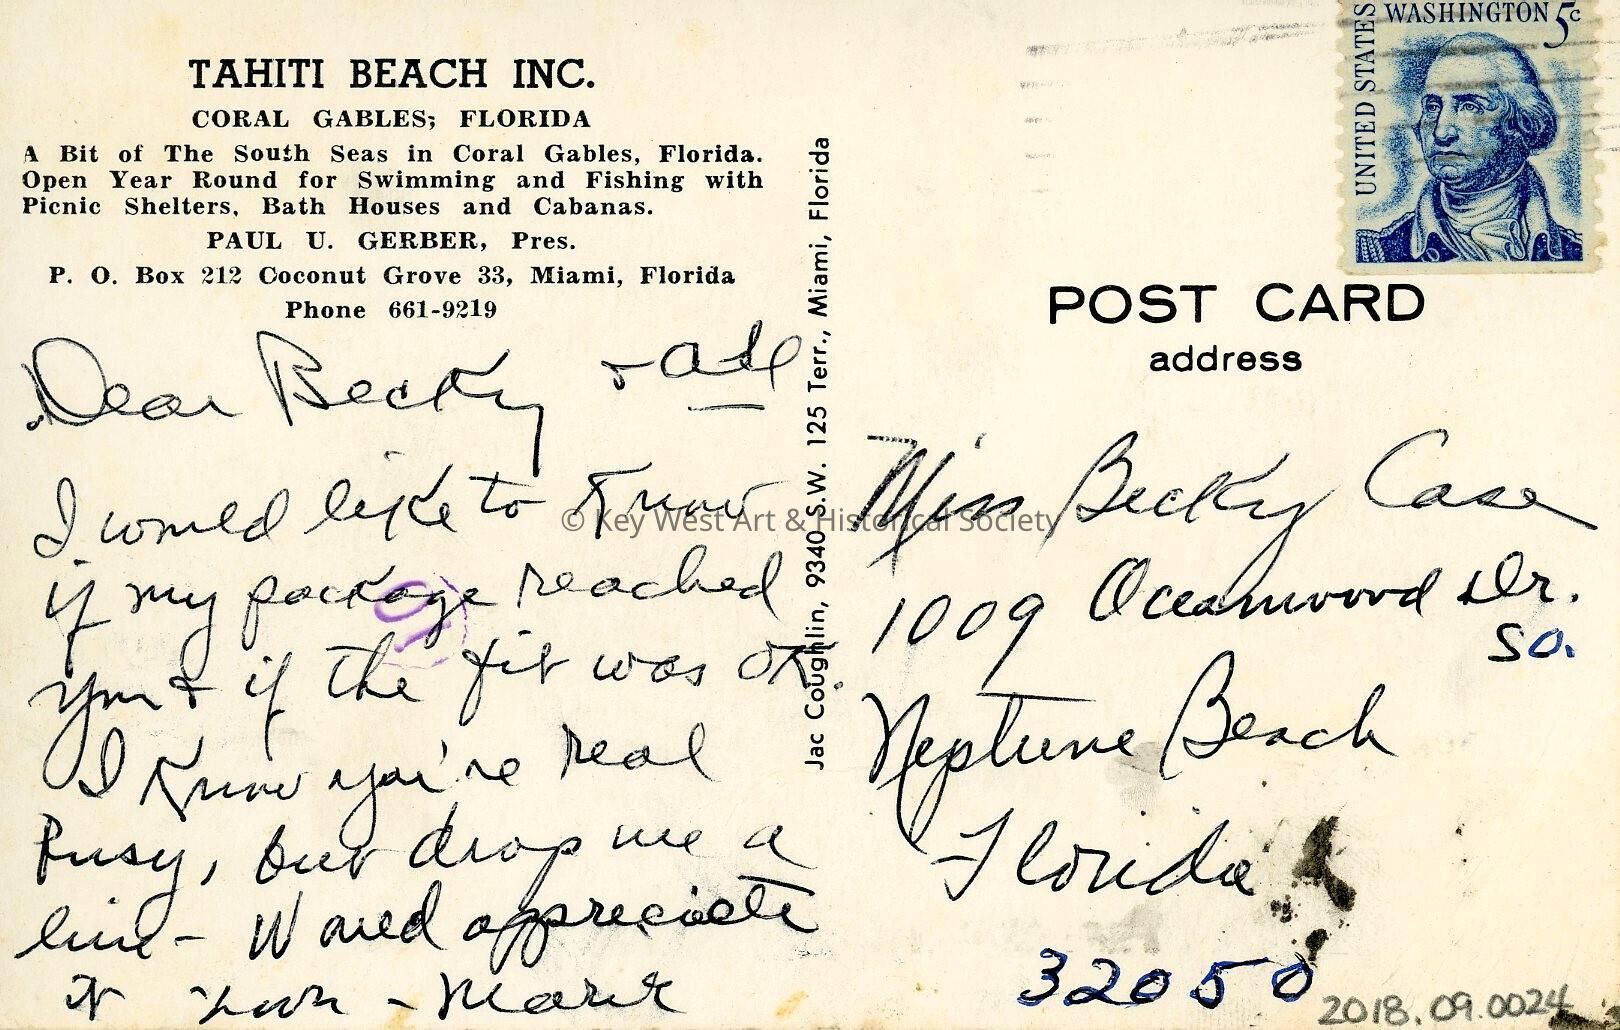 TAHITI BEACH INC.
CORAL GABLES; FLORIDA
A Bit of The South Seas in Coral Gables, Florida.
Open Year Round for Swimming and Fishing with
Picnic Shelters, Bath Houses and Cabanas.
PAUL U. GERBER, Pres.
P. O. Box 212 Coconut Grove 33, Miami, Florida
Phone 661-9219
Dear Becky & all
I would like to know
if my package reached
you & if the fit was OK.
I know you're real
busy, but drop me a
line - Would appreciate
it
Jac Coughlin, 9340 S.W. 125 Terr., Miami, Florida
UNITED STATES
WASHINGTON 5c
POST CARD
address
Miss Becky Case
1009 Oceanwood Dr.
SO.
Neptune Beach
Florida
32050
2018.09.0024
© Key West Art & Historical Society